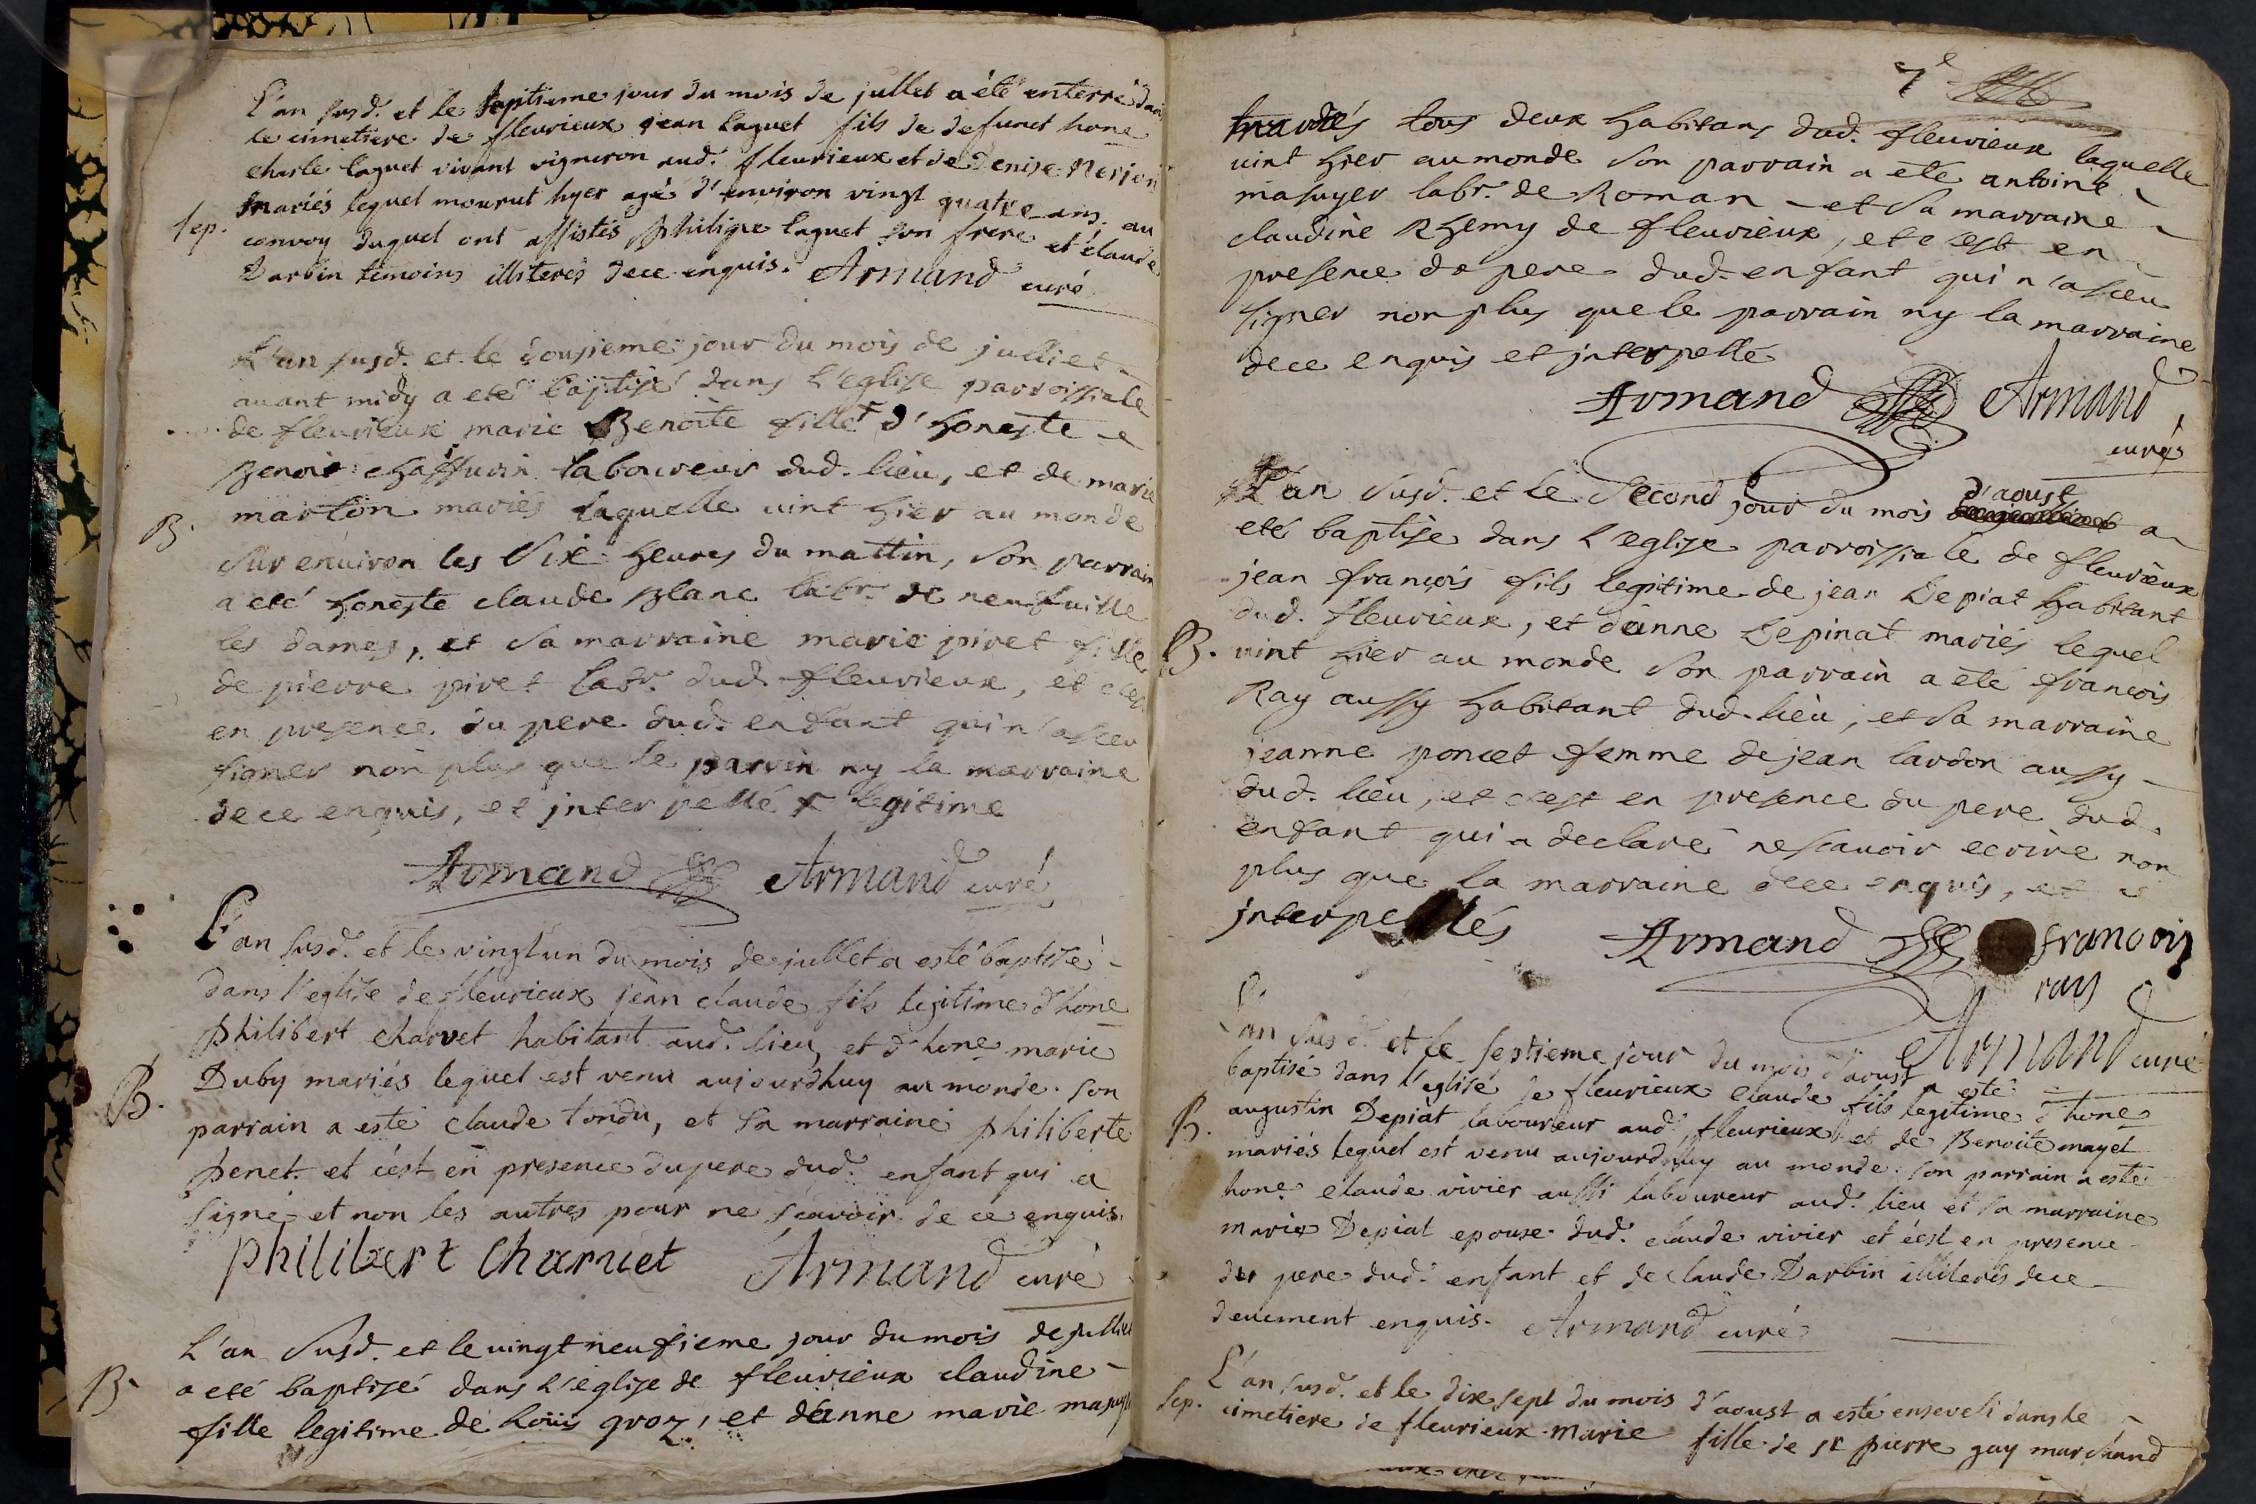 L'an susd. et le septieme jour du mois de jullet a été enterré dans
le cimetiere de fleurieux jean laguet fils de defunct hone
charle laguet vivant vigneron aud. fleurieux et de Denise Merion
mariés lequel mourut hyer agé d'environ vingt quatre ans. au
Sep.
convoy duquel ont assistés philipe laguet son frere et claude
Darbin temoins illiterés de ce enquis. Armand curé
L'an susd. et le dousieme jour du mois de julliet
avant midy a eté baptisé dans l'eglise parroissiale
de fleurieux marie Benoite fille + d'honeste
Benoit chaffurin laboureur dud. lieu, et de marie
B.
marton mariés laquelle vint hier au monde
sur environ les six heures du mattin, son parrain
a eté honeste claude Blanc labr. de neufuille
les dames, et sa marraine marie piret fille
de pierre piret labr. dud. fleurieux, et c'est
en presence du pere dud. enfant qui n'a sceu
signer non plus que le parrin ny la marraine
de ce enquis, et interpellé + legitime
Armand Armand curé
L'an susd. et le vingt un du mois de jullet a esté baptisé
dans l'eglise de fleurieux jean claude fils legitime d'hone
philibert charvet habitant aud. lieu, et d'hone marie
B.
Duby mariés lequel est venu aujourdhuy au monde. son
parrain a esté claude tondu, et sa marraine philiberte
penet. et c'est en presence du pere dud. enfant qui a
signé et non les autres pour ne scavoir de ce enquis.
philibert Charuet Armand curé
L'an susd. et le vingt neufieme jour du mois de julliet
B.
a eté baptisé dans l'eglise de fleurieux claudine
fille legitime de loüis groz, et d'anne marie masuyer
7e
mariés tous deux habitans dud. fleurieux laquelle
vint hier au monde son parrain a eté antoine
masuyer labr. de Roman et sa marraine
claudine Rhemy de fleurieux, et c'est en
presence de pere dud. enfant qui n'a sceu
signer non plus que le parrain ny la marraine
de ce enquis et interpellé
Armand Armand
curés
L'an susd. et le second jour du mois d'aoust a
eté baptise dans l'eglise parroissiale de fleurieux
jean françois fils legitime de jean Depiat habitant
dud. fleurieux, et d'anne Depinat mariés lequel
B.
vint hier au monde son parrain a eté françois
Ray aussy habitant dud. lieu, et sa marraine
jeanne poncet femme de jean lardon aussy
dud. lieu, et c'est en presence du pere dud.
enfant qui a declaré ne scavoir ecrire non
plus que la marraine de ce enquis, et
interpellés Armand francois
ray
Armand curé
L'an susd. et le septieme jour du mois d'aoust a esté
baptisé dans l'eglise de fleurieux claude fils legitime d'hone
B.
augustin Depiat laboureur aud. fleurieux et de Benoite mayet
mariés lequel est venu aujourdhuy au monde. son parrain a esté
hone claude vivier aussi laboureur aud. lieu et sa marraine
marie Depiat epouse dud. claude vivier et c'est en presence
du pere dud. enfant et de claude Darbin illiterés de ce
deuement enquis. Armand curé
L'an susd. et le dix sept du mois d'aoust a esté enseveli dans le
Sep.
cimetiere de fleurieux marie fille de sr pierre guy marchand